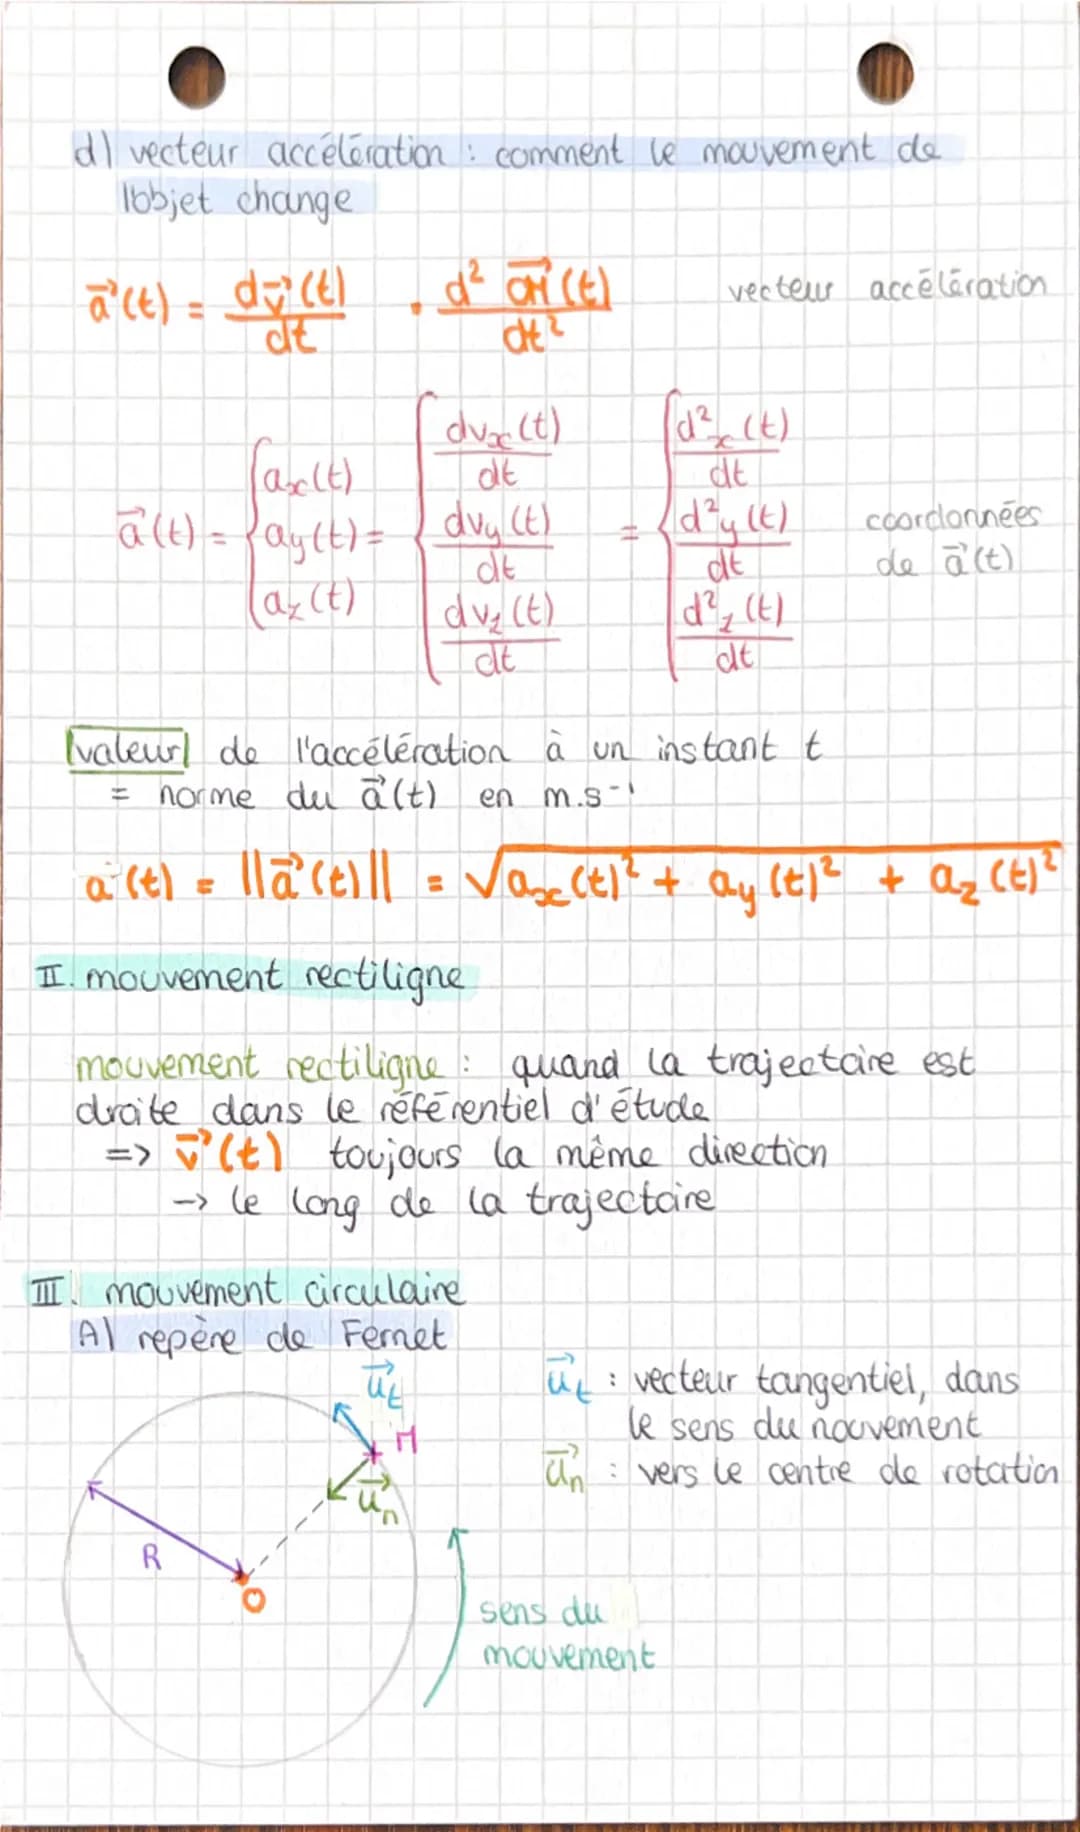 d) vecteur accélération : comment le mouvement de
l'objet change
a⃗(t) = dv⃗(t)/dt . d² OM⃗(t)/dt² vecteur accélération
a⃗(t) = { ax(t) ay(t) az(t) = { dvx(t)/dt dvy(t)/dt dvz(t)/dt = { d²x(t)/dt d²y(t)/dt d²z(t)/dt coordonnées de a⃗(t)
valeur de l'accélération à un instant t
= norme du a⃗(t) en m.s⁻¹
a(t) = ||a⃗(t)|| = √ax(t)² + ay(t)² + az(t)²
II. mouvement rectiligne
mouvement rectiligne : quand la trajectoire est
droite dans le référentiel d'étude
=> v⃗(t) toujours la même direction
-> le long de la trajectoire
III. mouvement circulaire
A) repère de Fernet
u⃗t
M
u⃗n
R
O
sens du
mouvement
u⃗t : vecteur tangentiel, dans
le sens du mouvement
u⃗n : vers le centre de rotation